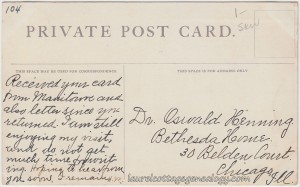 104
1-
PRIVATE POST CARD.
THIS SPACE MAY BE USED FOR CORRESPONDENCE
THIS SPACE IS FOR ADDRESS ONLY
Received your card
from Manitowoc and
also letter since you
returned. I am still
enjoying my visit,
do not get
much time for writ
ing. hoping to hear from
you soon I remain
Dr. Oswald Henning
Bethesda Home.
30 Belden Court.
Chicago
Ill
laurelcottagegenealogy.com